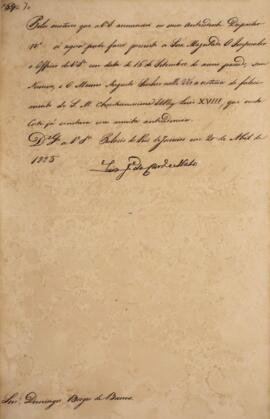 Pelos motivos que a V.S. annunciei no meu antecedente Despacho
nº   só agora pude fazer presente a Sua Magestade O Imperador
o Officio de V.Sª em data de 16 de Setembro do anno passado, sem
numero, e O Mesmo Augusto Senhor            a noticia do faleci-
mento de S. M. Christianissima ElRey Luis XVIII, que nesta
Corte já constava com muita antecedencia.
Ds. Ge. a V. Sª. Palacio do Rio de Janeiro em 20 de Abril de
1825
Luis Je. de Carvo. e Mello
Snr. Domingos Borges de Barros.